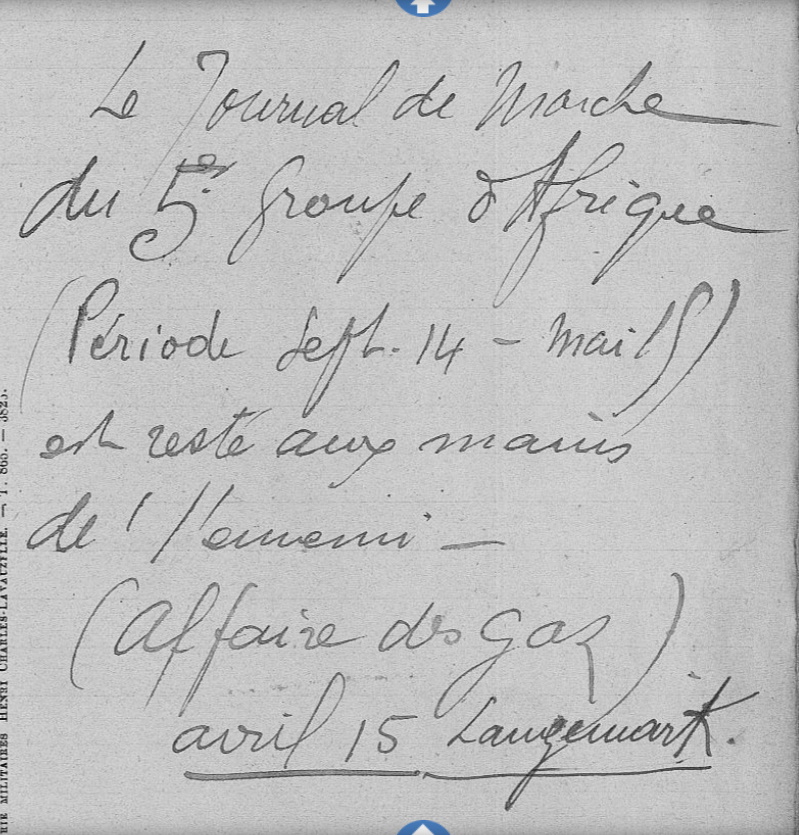 Le Journal de Marche
du 5e Groupe d'Afrique
(Période Sept. 14 - Mai 15)
est resté aux mains
de l'ennemi -
(Affaire des Gaz)
avril 15 Langemark.
RIE MILITAIRES HENRI CHARLES-LAVAUZELLE. — T. 865. — 3825.